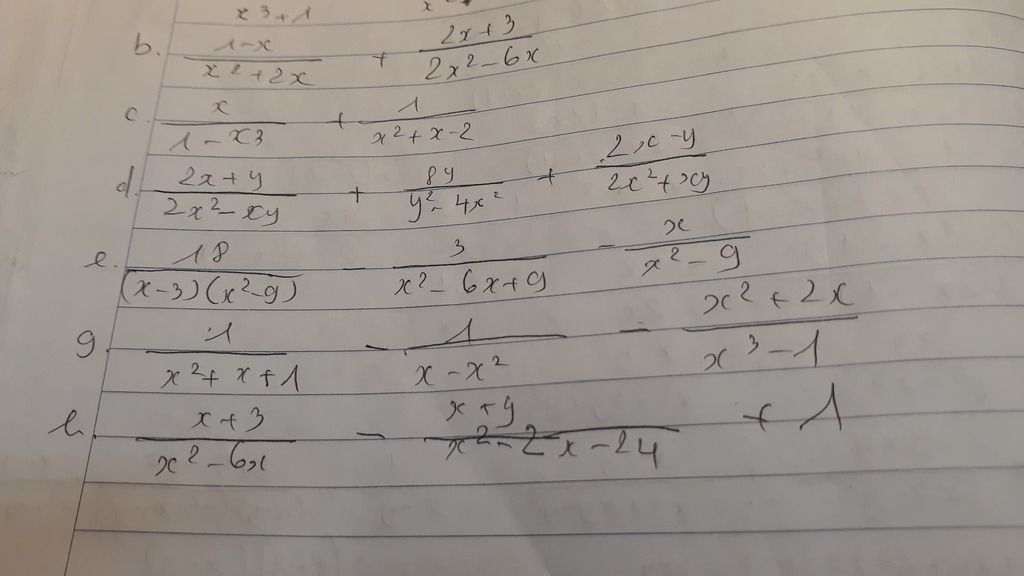 x³+1
b. (1-x)/(x²+2x) + (2x+3)/(2x²-6x)
c. x/(1-x3) + 1/(x²+x-2)
d. (2x+y)/(2x²-xy) + 8y/(y²-4x²) + (2x-y)/(2x²+xy)
e. 18/((x-3)(x²-9)) - 3/(x²-6x+9) - x/(x²-9)
g. 1/(x²+x+1) - 1/(x-x²) - (x²+2x)/(x³-1)
h. (x+3)/(x²-6x) - (x+9)/(x²-2x-24) + 1